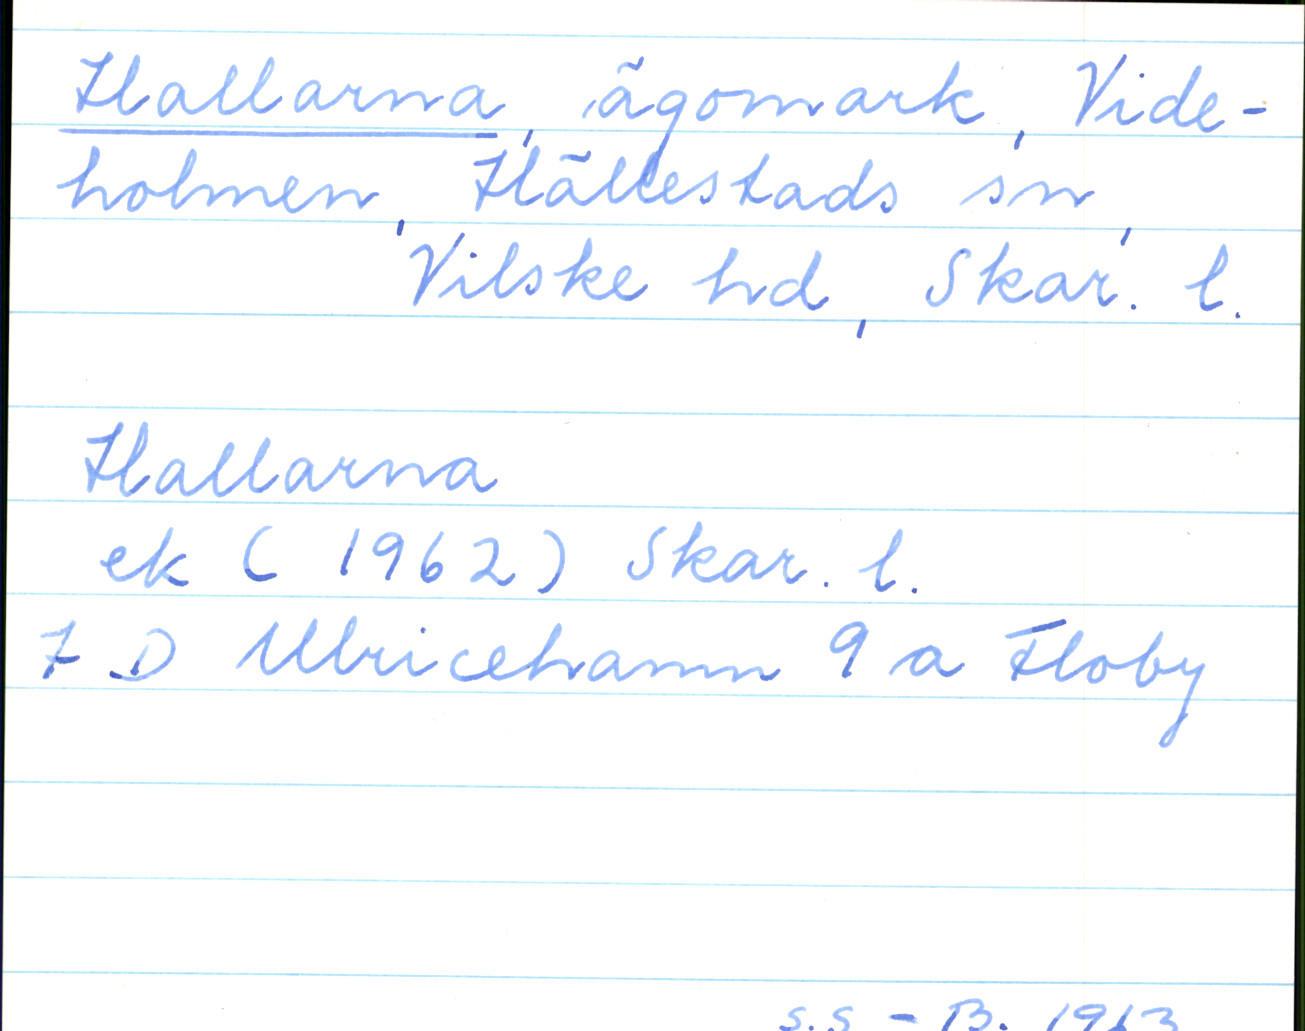 Hallarna, ägomark, Vide-
holmen, Hällestads sn,
Vilske hd, Skar. l.
Hallarna
ek (1962) Skar. l.
7 D Ulricehamn 9 a Floby
s.s - B. 1963